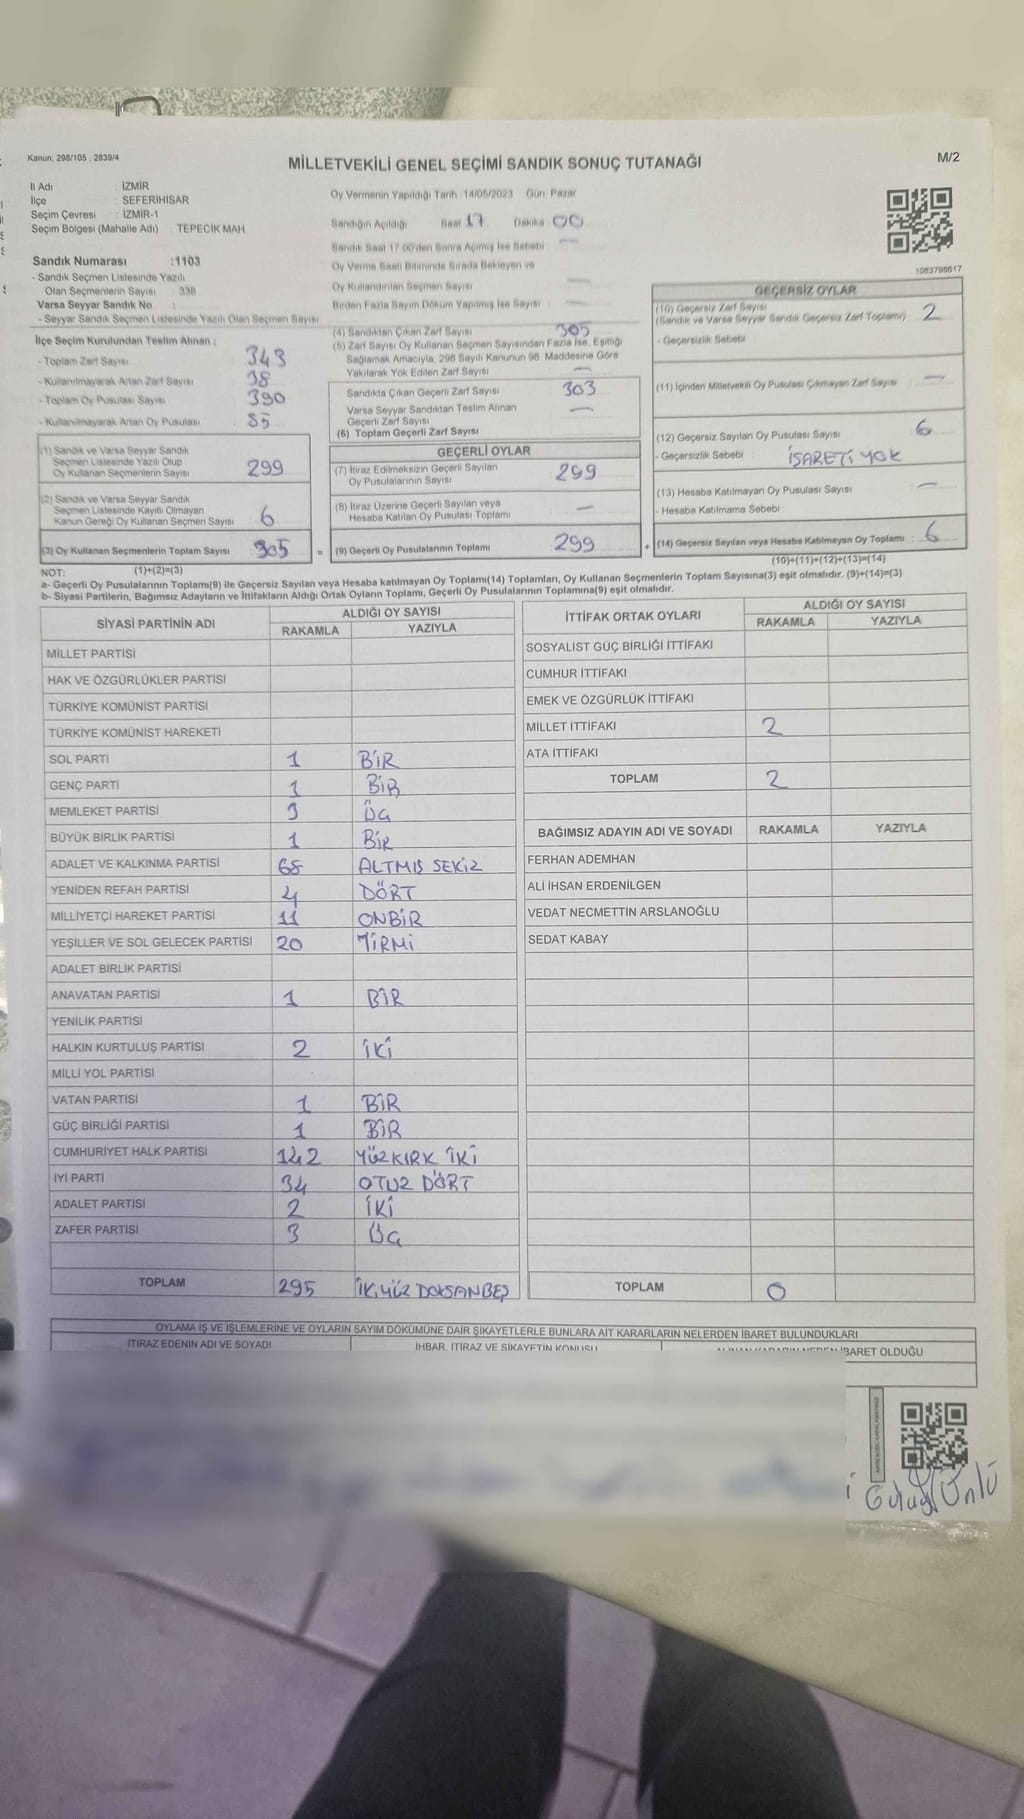 Kanun; 298/105 , 2839/4
MİLLETVEKİLİ GENEL SEÇİMİ SANDIK SONUÇ TUTANAĞI
M/2
İl Adı : İZMİR
İlçe : SEFERİHİSAR
Seçim Çevresi : İZMİR-1
Seçim Bölgesi (Mahalle Adı) : TEPECİK MAH.
Sandık Numarası :1103
- Sandık Seçmen Listesinde Yazılı
Olan Seçmenlerin Sayısı : 338
Varsa Seyyar Sandık No :
- Seyyar Sandık Seçmen Listesinde Yazılı Olan Seçmen Sayısı
İlçe Seçim Kurulundan Teslim Alınan ;
- Toplam Zarf Sayısı 343
- Kullanılmayarak Artan Zarf Sayısı 38
- Toplam Oy Pusulası Sayısı 390
- Kullanılmayarak Artan Oy Pusulası 85
(1) Sandık ve Varsa Seyyar Sandık
Seçmen Listesinde Yazılı Olup
Oy Kullanan Seçmenlerin Sayısı 299
(2) Sandık ve Varsa Seyyar Sandık
Seçmen Listesinde Kayıtlı Olmayan
Kanun Gereği Oy Kullanan Seçmen Sayısı 6
(3) Oy Kullanan Seçmenlerin Toplam Sayısı 305
(1)+(2)=(3)
Oy Vermenin Yapıldığı Tarih :14/05/2023 Gün: Pazar
Sandığın Açıldığı Saat 17 Dakika 00
Sandık Saat 17.00'den Sonra Açılmış İse Sebebi —
Oy Verme Saati Bitiminde Sırada Bekleyen ve
Oy Kullandırılan Seçmen Sayısı —
Birden Fazla Sayım Döküm Yapılmış İse Sayısı —
(4) Sandıktan Çıkan Zarf Sayısı 305
(5) Zarf Sayısı Oy Kullanan Seçmen Sayısından Fazla İse, Eşitliği
Sağlamak Amacıyla, 298 Sayılı Kanunun 98. Maddesine Göre
Yakılarak Yok Edilen Zarf Sayısı —
Sandıkta Çıkan Geçerli Zarf Sayısı 303
Varsa Seyyar Sandıktan Teslim Alınan
Geçerli Zarf Sayısı —
(6) Toplam Geçerli Zarf Sayısı
GEÇERLİ OYLAR
(7) İtiraz Edilmeksizin Geçerli Sayılan
Oy Pusulalarının Sayısı 299
(8) İtiraz Üzerine Geçerli Sayılan veya
Hesaba Katılan Oy Pusulası Toplamı —
= (9) Geçerli Oy Pusulalarının Toplamı 299
1083798617
GEÇERSİZ OYLAR
(10) Geçersiz Zarf Sayısı
(Sandık ve Varsa Seyyar Sandık Geçersiz Zarf Toplamı) 2
- Geçersizlik Sebebi
(11) İçinden Milletvekili Oy Pusulası Çıkmayan Zarf Sayısı —
(12) Geçersiz Sayılan Oy Pusulası Sayısı 6
- Geçersizlik Sebebi İŞARETİ YOK
(13) Hesaba Katılmayan Oy Pusulası Sayısı —
- Hesaba Katılmama Sebebi
+ (14) Geçersiz Sayılan veya Hesaba Katılmayan Oy Toplamı : 6
(10)+(11)+(12)+(13)=(14)
NOT:
a- Geçerli Oy Pusulalarının Toplamı(9) ile Geçersiz Sayılan veya Hesaba katılmayan Oy Toplamı(14) Toplamları, Oy Kullanan Seçmenlerin Toplam Sayısına(3) eşit olmalıdır. (9)+(14)=(3)
b- Siyasi Partilerin, Bağımsız Adayların ve İttifakların Aldığı Ortak Oyların Toplamı, Geçerli Oy Pusulalarının Toplamına(9) eşit olmalıdır.
SİYASİ PARTİNİN ADI ALDIĞI OY SAYISI
RAKAMLA YAZIYLA
MİLLET PARTİSİ
HAK VE ÖZGÜRLÜKLER PARTİSİ
TÜRKİYE KOMÜNİST PARTİSİ
TÜRKİYE KOMÜNİST HAREKETİ
SOL PARTİ 1 BİR
GENÇ PARTİ 1 BİR
MEMLEKET PARTİSİ 3 ÜÇ
BÜYÜK BİRLİK PARTİSİ 1 BİR
ADALET VE KALKINMA PARTİSİ 68 ALTMIŞ SEKİZ
YENİDEN REFAH PARTİSİ 4 DÖRT
MİLLİYETÇİ HAREKET PARTİSİ 11 ONBİR
YEŞİLLER VE SOL GELECEK PARTİSİ 20 YİRMİ
ADALET BİRLİK PARTİSİ
ANAVATAN PARTİSİ 1 BİR
YENİLİK PARTİSİ
HALKIN KURTULUŞ PARTİSİ 2 İKİ
MİLLİ YOL PARTİSİ
VATAN PARTİSİ 1 BİR
GÜÇ BİRLİĞİ PARTİSİ 1 BİR
CUMHURİYET HALK PARTİSİ 142 YÜZKIRK İKİ
İYİ PARTİ 34 OTUZ DÖRT
ADALET PARTİSİ 2 İKİ
ZAFER PARTİSİ 3 ÜÇ
TOPLAM 295 İKİYÜZ DOKSANBEŞ
İTTİFAK ORTAK OYLARI ALDIĞI OY SAYISI
RAKAMLA YAZIYLA
SOSYALİST GÜÇ BİRLİĞİ İTTİFAKI
CUMHUR İTTİFAKI
EMEK VE ÖZGÜRLÜK İTTİFAKI
MİLLET İTTİFAKI 2
ATA İTTİFAKI
TOPLAM 2
BAĞIMSIZ ADAYIN ADI VE SOYADI RAKAMLA YAZIYLA
FERHAN ADEMHAN
ALİ İHSAN ERDENİLGEN
VEDAT NECMETTİN ARSLANOĞLU
SEDAT KABAY
TOPLAM 0
OYLAMA İŞ VE İŞLEMLERİNE VE OYLARIN SAYIM DÖKÜMÜNE DAİR ŞİKAYETLERLE BUNLARA AİT KARARLARIN NELERDEN İBARET BULUNDUKLARI
İTİRAZ EDENİN ADI VE SOYADI İHBAR, İTİRAZ VE ŞİKAYETİN KONUSU İBARET OLDUĞU
Ünlü